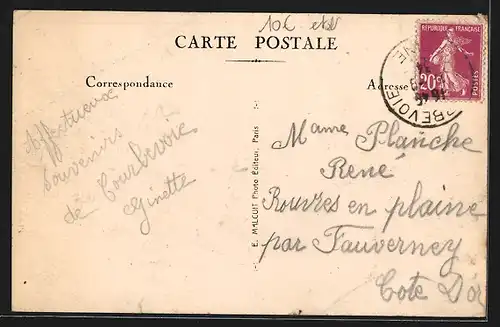 10€
CARTE POSTALE
Correspondance
Adresse
RÉPUBLIQUE FRANÇAISE
20c
POSTES
RBEVOIE
NE
Affectueux
souvenirs
de Courbevoie
Ginette
E. MALCUIT Photo Éditeur, Paris
Mame Planche
René
Rouvres en plaine
par Fauverney
Cote D'or